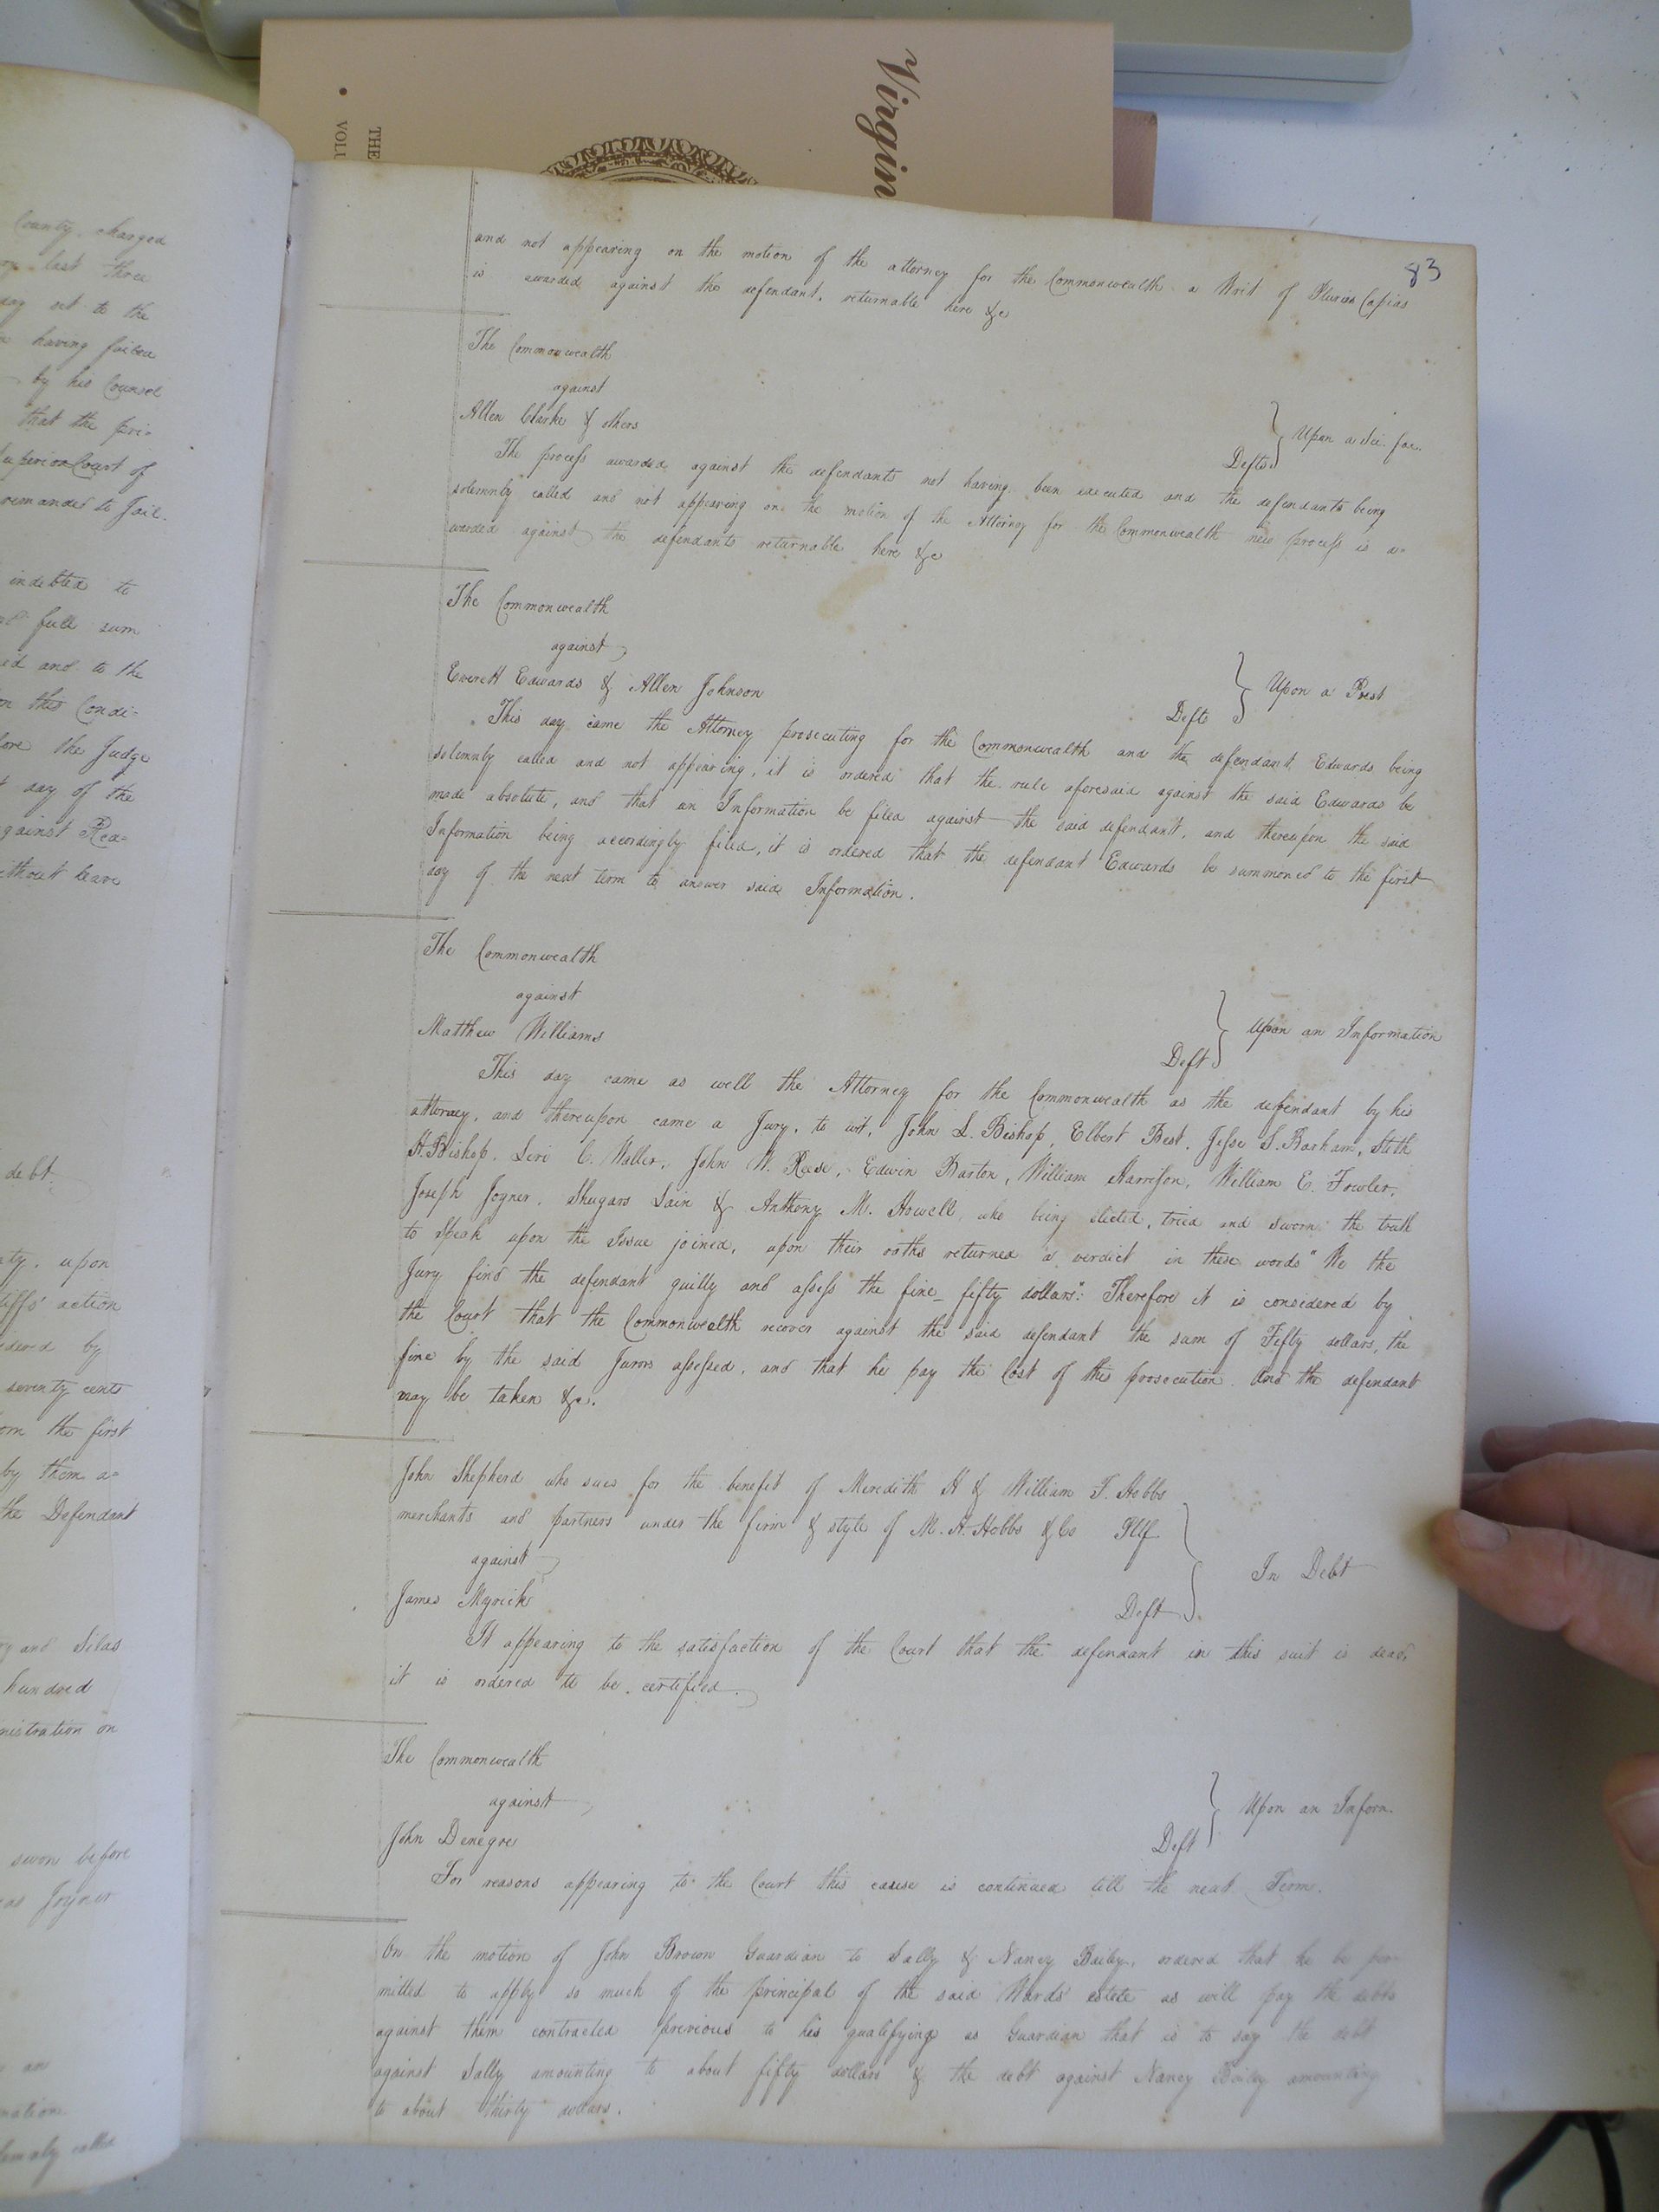 Virgin
THE
VOLU
83
and not appearing on the motion of the attorney for the Commonwealth a Writ of Pluries Capias
is awarded against the defendant, returnable here &c
The Commonwealth
against
Allen Clarke & others Defts } Upon a Sci. fac.
The process awarded against the defendants not having been executed and the defendants being
solemnly called and not appearing on the motion of the Attorney for the Commonwealth new process is a=
warded against the defendants returnable here &c
The Commonwealth
against
Everett Edwards & Allen Johnson Defts } Upon a Prest
This day came the Attorney prosecuting for the Commonwealth and the defendant Edwards being
solemnly called and not appearing, it is ordered that the rule aforesaid against the said Edwards be
made absolute, and that an Information be filed against the said defendant, and thereupon the said
Information being accordingly filed, it is ordered that the defendant Edwards be summoned to the first
day of the next term to answer said Information.
The Commonwealth
against
Matthew Williams Deft } Upon an Information
This day came as well the Attorney for the Commonwealth as the defendant by his
attorney, and thereupon came a Jury, to wit, John L. Bishop, Elbert Best, Jesse S. Barham, Sith
H. Bishop, Levi C. Waller, John W. Reese, Edwin Barton, William Harrison, William E. Fowler,
Joseph Joyner, Shugars Lain & Anthony M. Howell, who being elected, tried and sworn the truth
to speak upon the Issue joined, upon their oaths returned a verdict in these words "We the
Jury find the defendant guilty and assess the fine fifty dollars": Therefore it is considered by
the Court that the Commonwealth recover against the said defendant the sum of Fifty dollars, the
fine by the said Jurors assessed, and that he pay the Cost of the prosecution. And the defendant
may be taken &c.
John Shepherd who sues for the benefit of Meredith H & William F. Hobbs
merchants and partners under the firm & style of M. H. Hobbs & Co Pltf
against } In Debt
James Myrick Deft
It appearing to the satisfaction of the Court that the defendant in this suit is dead,
it is ordered to be certified.
The Commonwealth
against
John Denegre Deft } Upon an Inform.
For reasons appearing to the Court this cause is continued till the next Term.
On the motion of John Brown Guardian to Sally & Nancy Baily, ordered that he be per-
mitted to apply so much of the principal of the said Wards' estate as will pay the debts
against them contracted previous to his qualifying as Guardian that is to say the debt
against Sally amounting to about fifty dollars & the debt against Nancy Baily amounting
to about thirty dollars.
County, charged
last three
out to the
having failed
by his Counsel
that the pri=
Superior Court of
remanded to Jail.
indebted to
full sum
and to the
this Condi=
the Judge
day of the
against Rea=
without leave
debt.
upon
action
by
seventy cents
the first
by them a=
the Defendant
and Silas
hundred
on
sworn before
Joyner
an
called